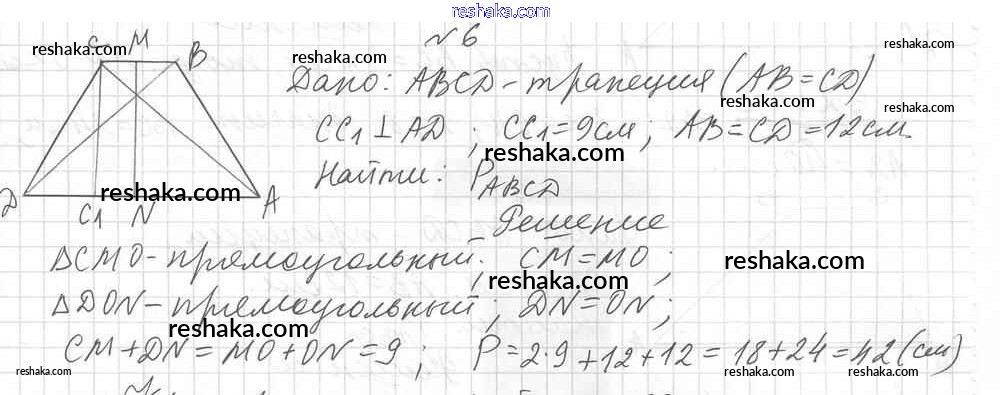 reshaka.com
№6
C M B
Дано: ABCD - трапеция (AB = CD)
CC₁ ⊥ AD ; CC₁ = 9 см ; AB = CD = 12 см.
Найти: P ABCD
D C₁ N A
Решение
ΔCMO - прямоугольный; CM = MO ;
ΔDON - прямоугольный ; DN = ON ;
CM + DN = MO + ON = 9 ; P = 2·9 + 12 + 12 = 18 + 24 = 42 (см)
reshaka.com
reshaka.com
reshaka.com
reshaka.com
reshaka.com
reshaka.com
reshaka.com
reshaka.com
reshaka.com
reshaka.com
reshaka.com
reshaka.com
reshaka.com
reshaka.com